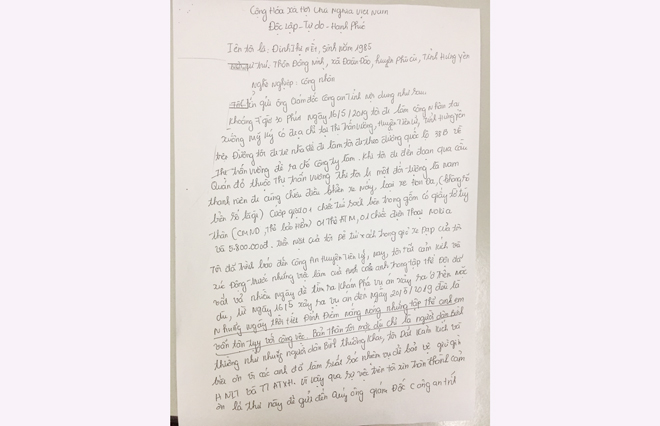 Cộng Hòa Xã Hội Chủ Nghĩa Việt Nam
Độc Lập - Tự do - Hạnh Phúc
Tên tôi là: Đinh Thị nến, sinh năm 1985
trú, Thôn Đồng Ninh, xã Đoàn Đào, huyện Phù Cừ, Tỉnh Hưng Yên
Nghề Nghiệp: Công nhân
gửi ông Giám đốc công an Tỉnh nội dung như sau.
Khoảng 7 giờ 30 Phút Ngày 16/5/2019 tôi đi làm công Nhân tại
xưởng Mỹ ký có địa chỉ tại thị Trấn Vương, Huyện Tiên Lữ, Tỉnh Hưng Yên
trên Đường tôi đi từ nhà để đi làm tôi đi theo đường quốc lộ 38B về
thị Trấn Vương để ra chỗ công Ty làm. Khi tôi đi đến đoạn qua cầu
Quán đỏ thuộc Thị Trấn Vương thì tôi bị một đối tượng là nam
thanh niên đi cùng chiều điều khiển xe máy, loại xe (không rõ
biển số là gì) Cướp giật 01 chiếc túi xách bên trong gồm có giấy tờ tùy
Thân (CMND, Thẻ bảo Hiểm) 01 Thẻ ATM, 01 chiếc điện Thoại NOKIA
và 5.800.000đ. Tiền mặt của tôi Để Túi xách trong giỏ xe Đạp của tôi
Tôi đã Trình báo đến Công An Huyện Tiên Lữ, nay, tôi rất cảm kích và
xúc Động trước những việc làm của anh trong tập thể Đội đã
vất vả nhiều ngày để tìm ra khám phá vụ án xảy ra ở trên mặc
dù, từ Ngày 16/5 xảy ra vụ án đến ngày 20/6/2019 đều là
Những ngày thời tiết Đỉnh Điểm nóng nóng nhưng tập thể anh em
vẫn tận tụy với công việc. Bản Thân tôi một chỉ là người dân Bình
thường như những người dân Bình thường Khác, tôi rất cảm kích và
biết ơn vì các anh đã làm xuất sắc nhiệm vụ để bảo vệ giữ gìn
ANTT và TTATXH. Vì vậy qua sự việc trên tôi xin Trân thành cảm
ơn lá thư này để gửi đến Quý ông giám Độc Công an